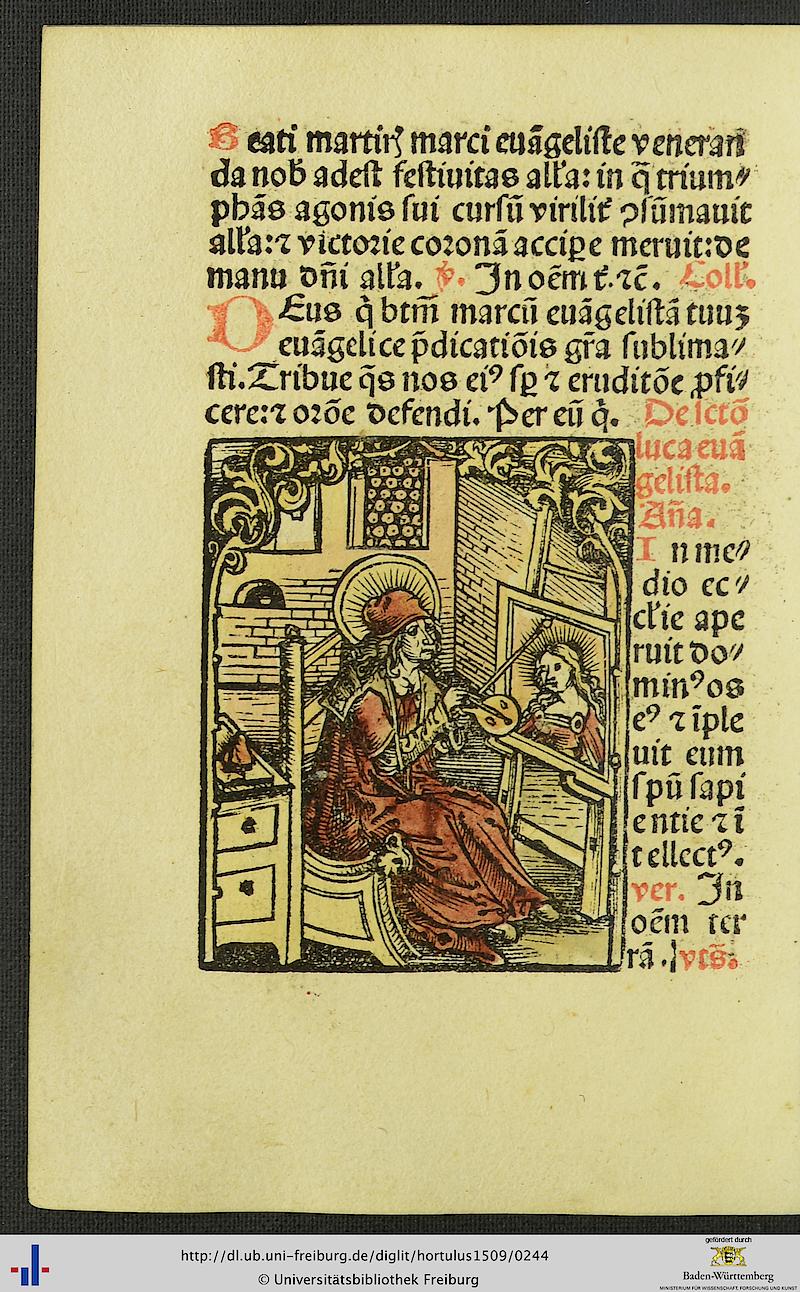 Beati martirꝭ marci euāgeliste veneran
da nob̄ adest festiuitas all'a: in q̄ trium⸗
phās agonis sui cursū virilit̄ ꝯsūmauit
all'a: ⁊ victorie coronā accipe meruit: de
manu dn̄i all'a. ℣. In oēm t̄. ⁊c̄. Coll'.
DEus q̇ btm̄ marcū euāgelistā tuuꝫ
euāgelice p̄dicatiōis gr̄a sublima⸗
sti. Tribue q̄s nos eiꝰ sꝑ ⁊ eruditōe ꝓfi⸗
cere: ⁊ orōe defendi. Per eū q̇. De sctō
luca euā
gelista.
An̄a.
In me⸗
dio ec⸗
cl'ie ape
ruit do⸗
minꝰ os
eꝰ ⁊ īple
uit eum
spū sapi
entie ⁊ ī
tellectꝰ.
ver. In
oēm ter
rā. vts̄.
http://dl.ub.uni-freiburg.de/diglit/hortulus1509/0244
© Universitätsbibliothek Freiburg
gefördert durch
Baden-Württemberg
MINISTERIUM FÜR WISSENSCHAFT, FORSCHUNG UND KUNST